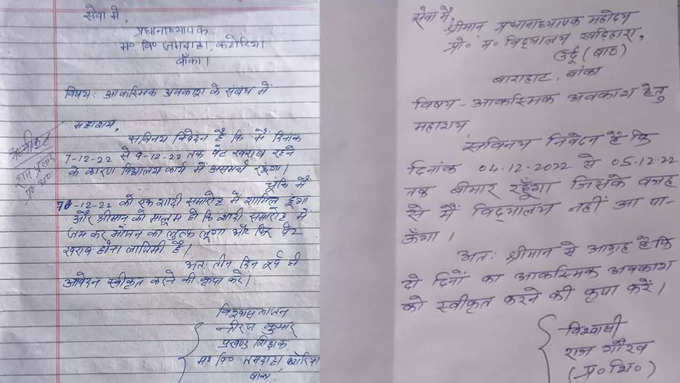 सेवा में,
प्रधानाध्यापक
म० वि० जमदाहा, कटोरिया
बाँका।
विषय: आकस्मिक अवकाश के संबंध में
महाशय,
सविनय निवेदन है कि मैं दिनांक
7-12-22 से 9-12-22 तक पेट खराब रहने
के कारण विद्यालय आने में असमर्थ रहूँगा।
चूंकि मैं
-12-22 को एक शादी समारोह में शामिल हूंगा
और श्रीमान को मालूम हो कि शादी समारोह में
जम कर भोजन का लुत्फ लूंगा और फिर पेट
खराब होना लाजिमी है।
अतः तीन दिन पूर्व ही
आवेदन स्वीकृत करने की कृपा करें।
विश्वासभाजन
नीरज कुमार
प्रखण्ड शिक्षक
म० वि० जमदाहा कटोरिया
बांका
सेवा में,
श्रीमान प्रधानाध्यापक महोदय
प्रो० म० विद्यालय खड़िहारा,
उर्दू (बाठ)
बाराहाट, बांका
विषय - आकस्मिक अवकाश हेतु
महाशय
सविनय निवेदन है कि
दिनांक 04.12.2022 से 05.12.22
तक बीमार रहूँगा जिसके वजह
से मैं विद्यालय नहीं आ पा-
ऊँगा।
अतः श्रीमान से आग्रह है कि
दो दिनों का आकस्मिक अवकाश
को स्वीकृत करने की कृपा करें।
विश्वासी
राज गौरव
(प्र० शि०)